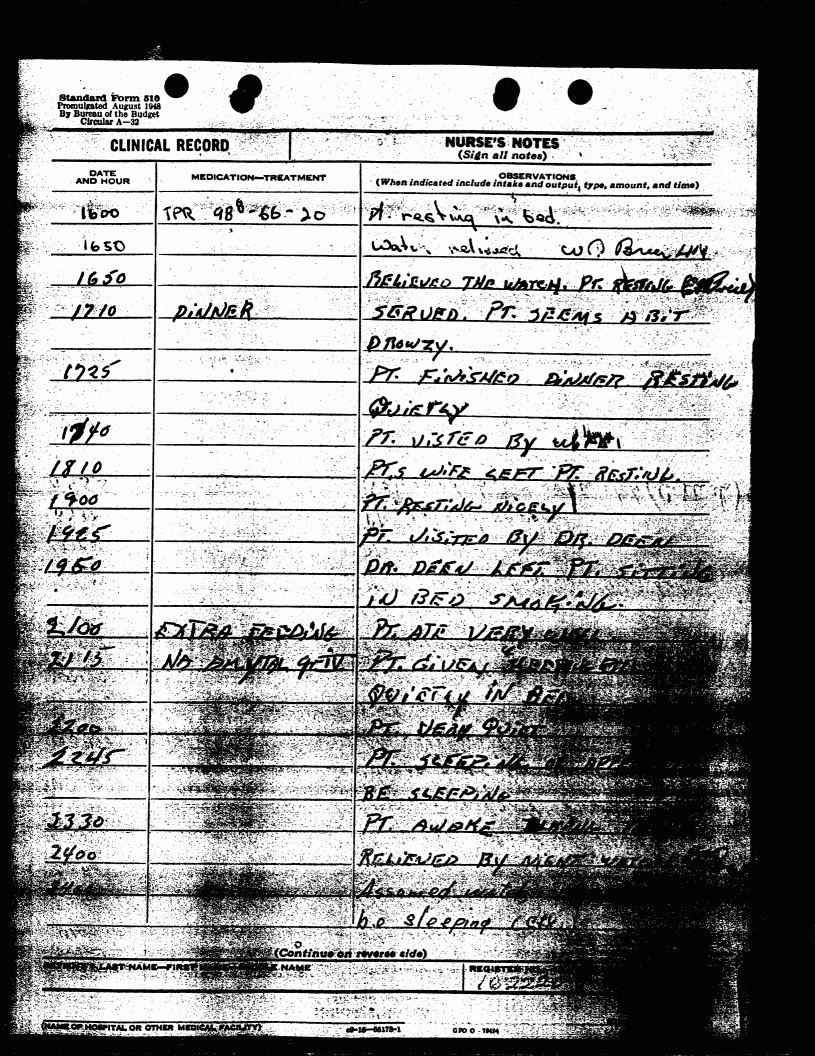 Standard Form 510
Promulgated August 1948
By Bureau of the Budget
Circular A—32
CLINICAL RECORD
NURSE'S NOTES
(Sign all notes)
DATE
AND HOUR
MEDICATION—TREATMENT
OBSERVATIONS
(When indicated include intake and output, type, amount, and time)
1600 TPR 98⁸-66-20 Pt. resting in bed.
1650 Watch relieved
1650 RELIEVED THE WATCH. PT. RESTING
1710 DINNER SERVED. PT. SEEMS A BIT
DROWZY.
1725 PT. FINISHED DINNER RESTING
QUIETLY
1740 PT. VISTED BY
1810 PT,S WIFE LEFT PT. RESTING.
1900 PT. RESTING NICELY
1925 PT. VISITED BY DR. DEEN
1950 DR. DEEN LEFT PT. SITTING
IN BED SMOKING.
2100 EXTRA FEEDING PT. ATE VERY WELL
2115 NA AMYTAL gr IV PT. GIVEN
QUIETLY IN BED
2200 PT. VERY QUIET
2245 PT. SLEEPING OR
BE SLEEPING
2330 PT AWAKE
2400 RELIEVED BY NIGHT WATCH
2400 Assumed watch
be sleeping
(Continue on reverse side)
PATIENT'S LAST NAME—FIRST NAME—MIDDLE NAME
REGISTER NO.
(NAME OF HOSPITAL OR OTHER MEDICAL FACILITY)